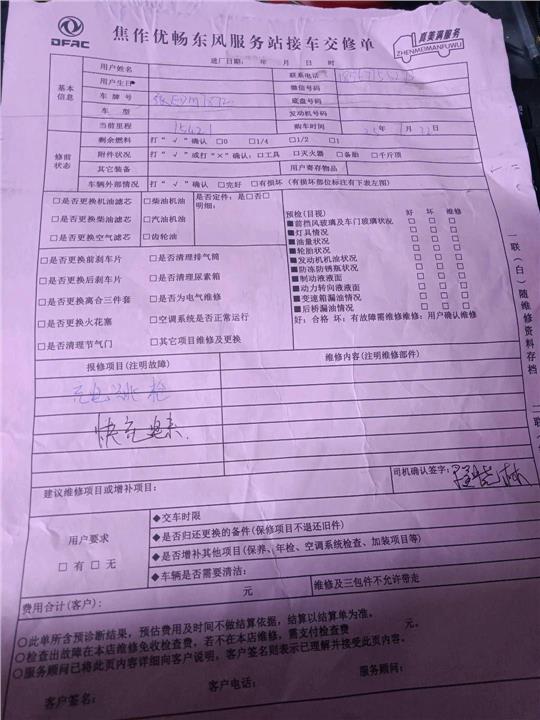 DFAC
焦作优畅东风服务站接车交修单
真美满服务
ZHENMEIMANFUWU
进厂日期: 年 月 日 时
基本信息
用户姓名 联系电话
用户生日 微信号码
车牌号 底盘号码
车型 发动机号码
当前里程 15421 购车时间
修前状态
剩余燃料 打“√”确认 □0 □1/4 □1/2 □1
附件状况 打“√”或打“×”确认: □工具 □灭火器 □备胎 □千斤顶
其它装备 用户寄存物品
车辆外部情况 打“√”确认 □完好 □有损坏(有损坏部位标注有下表左图)
□是否更换机油滤芯 □柴油机油 是否定件: 是□否□
明细:
□是否更换柴油滤芯 □汽油机油
□是否更换空气滤芯 □齿轮油
□是否更换前刹车片 □是否清理排气筒
□是否更换后刹车片 □是否清理尿素箱
□是否更换离合三件套 □是否为电气维修
□是否更换火花塞 □空调系统是否正常运行
□是否清理节气门 □其它项目维修及更换
预检(目视) 好 坏 维修
■前挡风玻璃及车门玻璃状况 □ □ □
■灯具情况 □ □ □
■油量状况 □ □ □
■轮胎状况 □ □ □
■发动机机油状况 □ □ □
■防冻防锈瓶状况 □ □ □
■制动液液面 □ □ □
■动力转向液液面 □ □ □
■变速箱漏油情况 □ □ □
■后桥漏油情况 □ □ □
好: 合格 坏: 有故障需维修维修: 用户确认维修
报修项目(注明故障) 维修内容(注明维修部件)
充电跳枪
快充
建议维修项目或增补项目:
司机确认签字:
用户要求
□有 □无
◆交车时限
◆是否归还更换的备件(保修项目不退还旧件)
◆是否增补其他项目(保养、年检、空调系统检查、加装项目等)
◆车辆是否需要清洁:
费用合计(客户): 元 维修及三包件不允许带走
○此单所含预诊断结果, 预估费用及时间不做结算依据, 结算以结算单为准。
○检查出故障在本店维修免收检查费, 若不在本店维修, 需支付检查费 元。
○服务顾问已将此页内容详细向客户说明, 客户签名则表示已理解并接受此页内容。
客户签名: 客户电话: 服务顾问:
一联(白)随维修资料存档